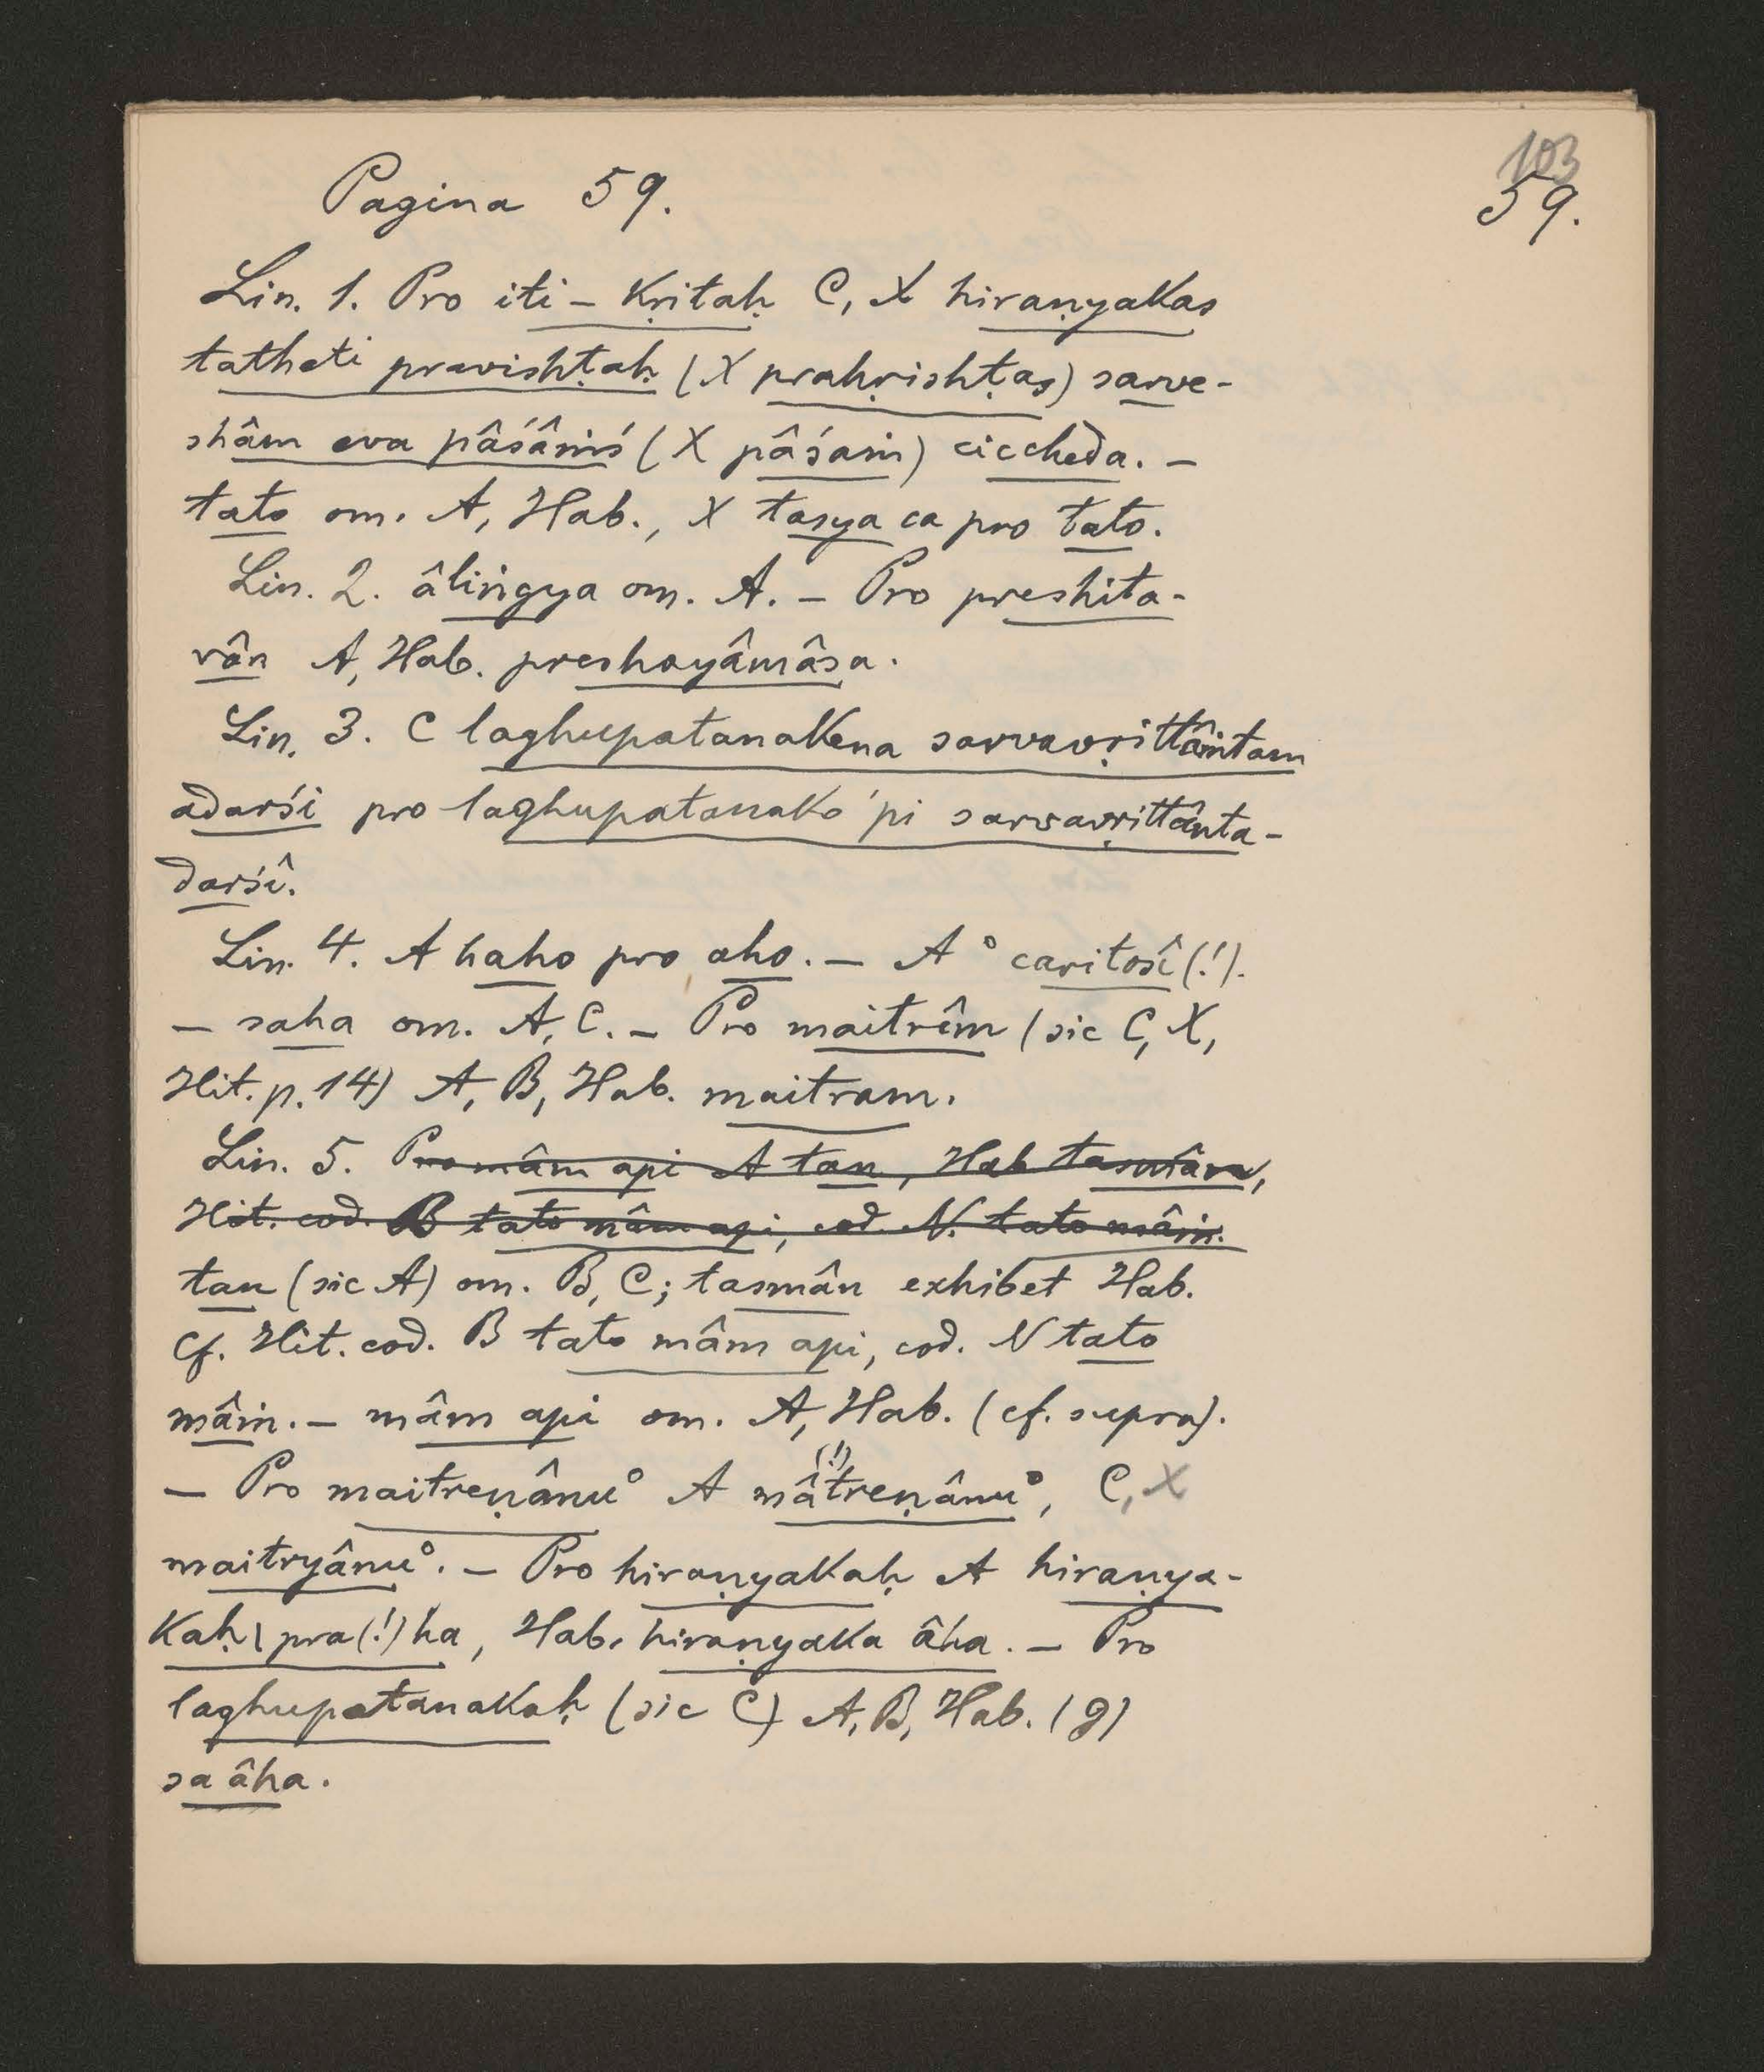 103
59.
Pagina 59.
Lin. 1. Pro iti – kṛitaḥ C, X hiraṇyakas
tatheti pravishṭaḥ (X prahṛishṭas) sarve-
shâm eva pâśâṁś (X pâśaṁ) ciccheda. –
tato om. A, Hab., X tasya ca pro tato.
Lin. 2. âliṅgya om. A. – Pro preshita-
vân A, Hab. preshayâmâsa.
Lin. 3. C laghupatanakena sarvavṛittântam
adarśi pro laghupatanako 'pi sarvavṛittânta-
darśî.
Lin. 4. A haho pro aho. – A ° caritosî (!).
– saha om. A, C. – Pro maitrîm (sic C, X,
Hit. p. 14) A, B, Hab. maitram.
Lin. 5. Pro mâm api A tan, Hab tasmân,
Hit. cod. B tato mâm api, cod. N. tato mâṁ.
tan (sic A) om. B, C; tasmân exhibet Hab.
Cf. Hit. cod. B tato mâm api, cod. N tato
mâṁ. – mâm api om. A, Hab. (cf. supra).
– Pro maitreṇânu° A mâ(!)treṇânu°, C, X
maitryânu°. – Pro hiraṇyakaḥ A hiraṇya-
kaḥ | pra(!)ha, Hab. hiraṇyaka âha. – Pro
laghupatanakaḥ (sic C) A, B, Hab. (g)
sa âha.